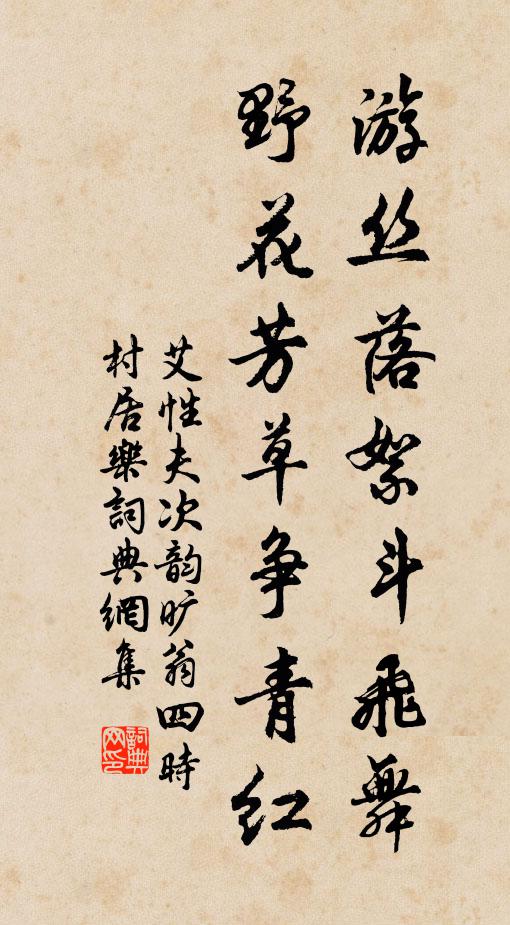 游丝落絮斗飛舞
野花芳草争青红
艾性夫次韵旷翁四時
村居樂詞典網集
詞典网印